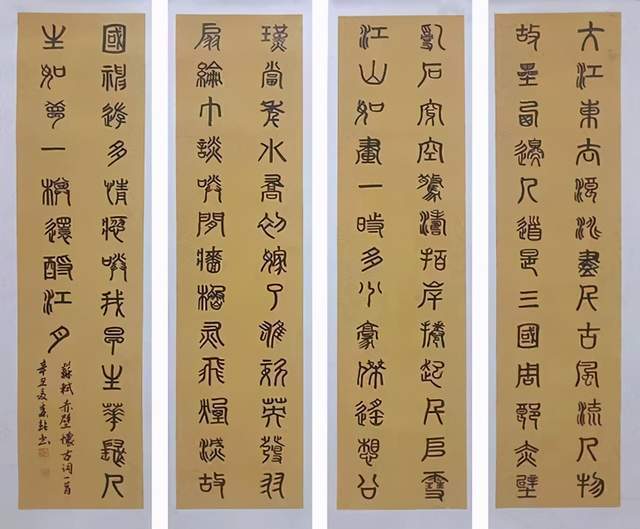 大江東去浪淘盡千古風流人物
故壘西邊人道是三國周郎赤壁
亂石穿空驚濤拍岸捲起千堆雪
江山如畫一時多少豪傑遙想公
瑾當年小喬初嫁了雄姿英發羽
扇綸巾談笑間檣櫓灰飛煙滅故
國神遊多情應笑我早生華髮人
生如夢一樽還酹江月
蘇軾赤壁懷古詞一首
辛丑夏書